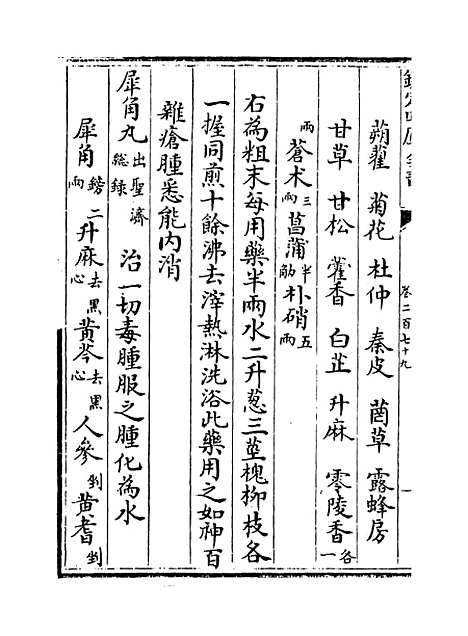 欽定四庫全書
卷二百七十九
一
蒴藋 菊花 杜仲 秦皮 茵草 露蜂房
甘草 甘松 藿香 白芷 升麻 零陵香各一
兩 蒼术三兩 菖蒲半觔 朴硝五兩
右為粗末每用藥半兩水二升葱三莖槐柳枝各
一握同煎十餘沸去滓熱淋洗浴此藥用之如神百
雜瘡腫悉能内消
犀角丸出聖濟總錄 治一切毒腫服之腫化為水
犀角鎊二兩 升麻去黑心 黄芩去黑心 人參剉 黄耆剉